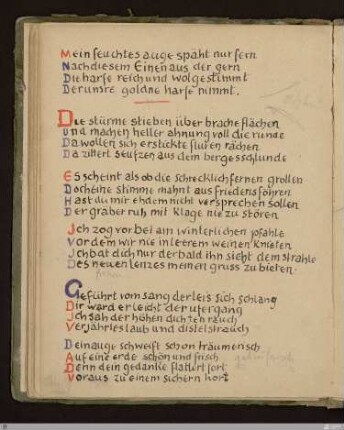 Mein feuchtes auge späht nur fern
Nach diesem Einen aus der gern
Die harfe reich und wolgestimmt
Der unsre goldne harfe nimmt.
Die stürme stieben über brache flächen
Und machen heller ahnung voll die runde
Da wollen sich erstickte fluren rächen
Da zittert seufzen aus dem bergesschlunde
Es scheint als ob die schrecklich fernen grollen
Doch eine stimme mahnt aus friedens föhren
Hast du mir ehdem nicht versprechen sollen
Der gräber ruh mit klage nie zu stören
Ich zog vor bei am winterlichen pfahle
Vor dem wir nie in leterem weinen knieten
Ich bat dich nur der bald ihn sieht dem strahle
Des neuen lenzes meinen gruss zu bieten.
Geführt vom sang der leis sich schlang
Dir ward er leicht der ufergang
Ich sah der höhen dichten rauch
Verjährtes laub und distelstrauch
Dein auge schweift schon träumerisch
Auf eine erde schön und frisch
Denn dein gedanke flattert fort
Voraus zu einem sichern hort